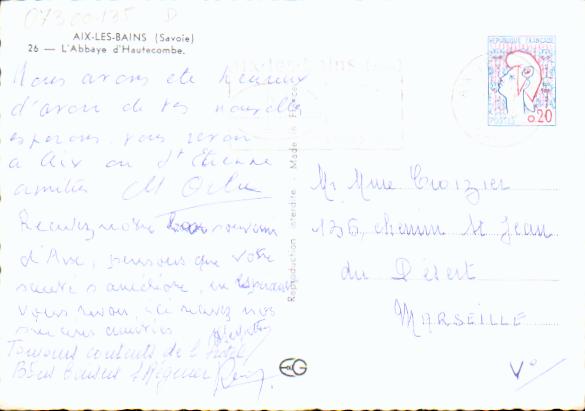 07300-135 D
AIX-LES-BAINS (Savoie)
26 — L'Abbaye d'Hautecombe.
Nous avons été heureux
d'avoir de tes nouvelles
esperons vous revoir
a Aix ou St Etienne
amitiés M
Recevez notre bon souvenir
d'Aix, pensons que votre
santé s'améliore, en esperant
vous revoir, recevez nos
sinceres amitiés
Toujours contents de l'hotel
Bons baisers
Reproduction interdite - Made in France
REPUBLIQUE FRANÇAISE
POSTES 0.20
Mr Mme Croizier
136, chemin St Jean
du Désert
MARSEILLE
V°